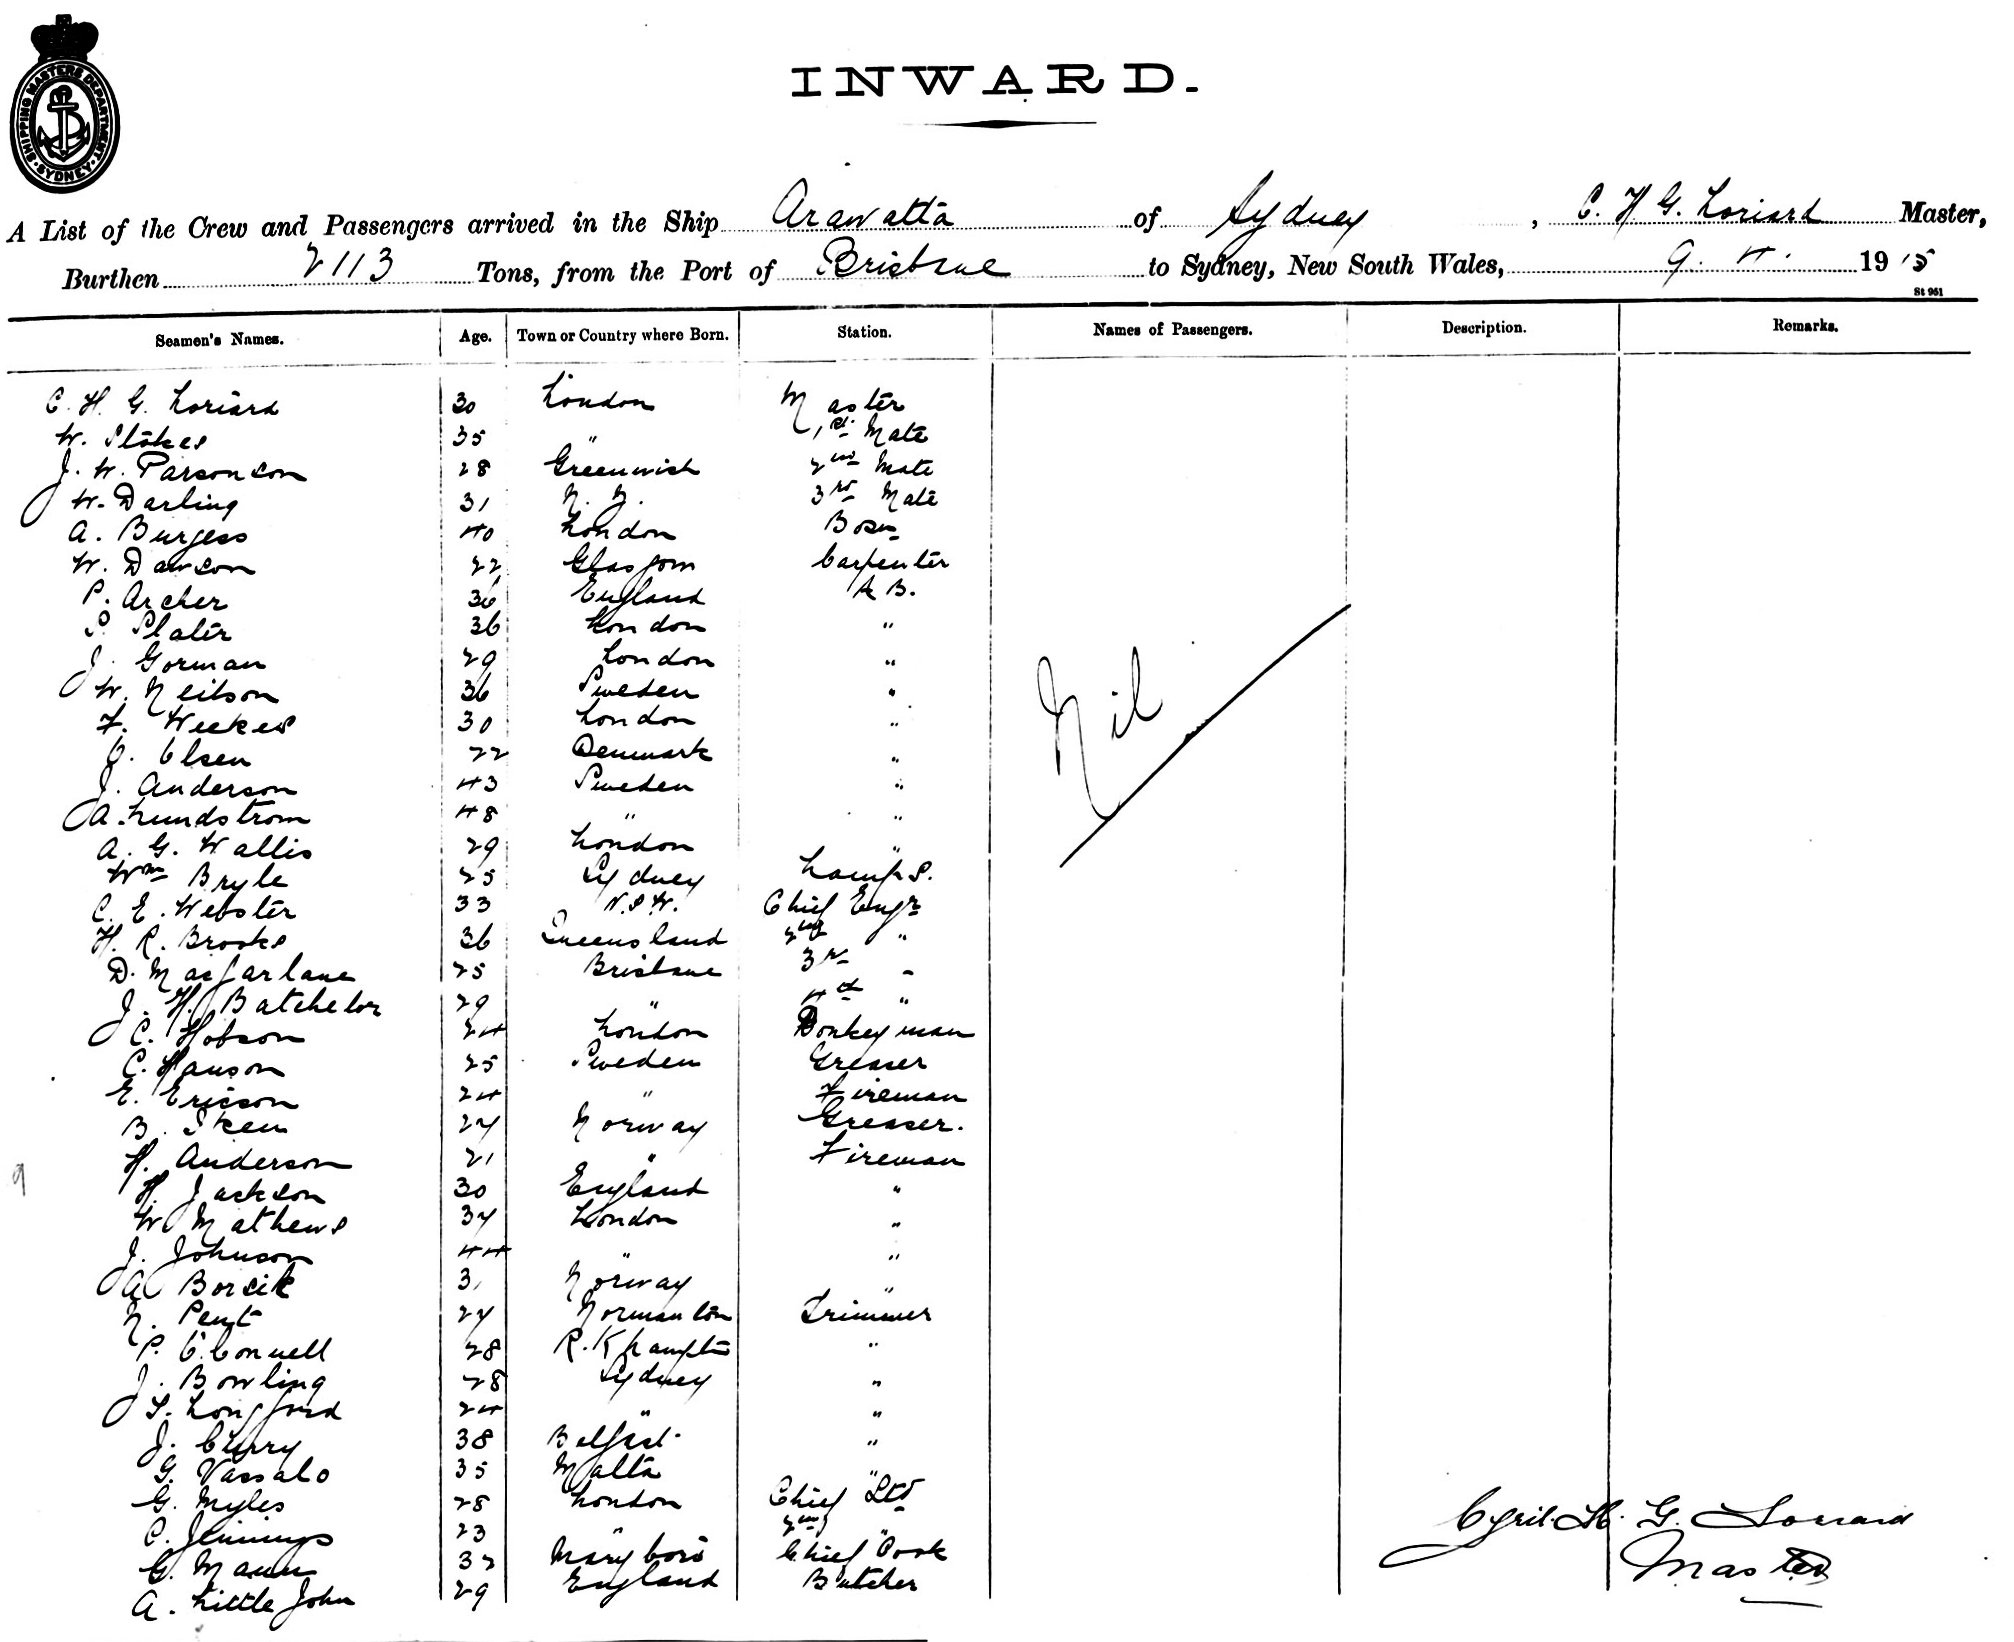 SHIPPING MASTERS DEPARTMENT · SYDNEY ·
INWARD.
A List of the Crew and Passengers arrived in the Ship Arawatta of Sydney, C. H. G. Loriard Master,
Burthen 2113 Tons, from the Port of Brisbane to Sydney, New South Wales, 9. 4. 1915
St 951
Seamen's Names. Age. Town or Country where Born. Station. Names of Passengers. Description. Remarks.
C. H. G. Loriard 30 London Master
W. Stokes 35 " 1st Mate
J. W. Parsonson 28 Greenwich 2nd Mate
W. Darling 31 N. Z. 3rd Mate
A. Burgess 40 London Bosn
W. Dawson 22 Glasgow Carpenter
P. Archer 36 England A B.
S. Slater 36 London "
J. Gorman 29 London "
W. Neilson 36 Sweden "
F. Weekes 30 London "
O. Olsen 22 Denmark "
J. Anderson 43 Sweden "
A. Lundstrom 48 " "
A. G. Wallis 29 London "
Wm Bryle 25 Sydney Lamps.
C. E. Webster 33 N.S.W. Chief Engr
H. R. Brooks 36 Queensland 2nd "
D. Macfarlane 25 Brisbane 3rd "
J. H. Batchelor 29 " 4th "
C. Hobson 24 London Donkeyman
C. Hanson 25 Sweden Greaser
E. Ericson 24 " Fireman
B. 27 Norway Greaser.
H. Anderson 21 " Fireman
H. Jackson 30 England "
W Mathews 37 London "
J. Johnson 44 " "
A Borsik 31 Norway "
N. Pent 27 Normanton Trimmer
P. O'Connell 28 R.Khampton "
J. Bowling 28 Sydney "
S. Longford 24 " "
J. Curry 38 Belfast "
G. Vassalo 35 Malta "
G. Myles 28 London Chief Std
C. Jennings 23 " 2nd "
G. Mann 32 Maryboro Chief Cook
A. Little John 29 England Butcher
Nil
Cyril. H. G. Loriard
Master
9